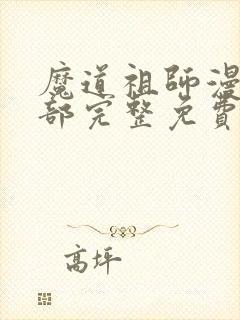 魔道祖師漫
部完整免費
高坪